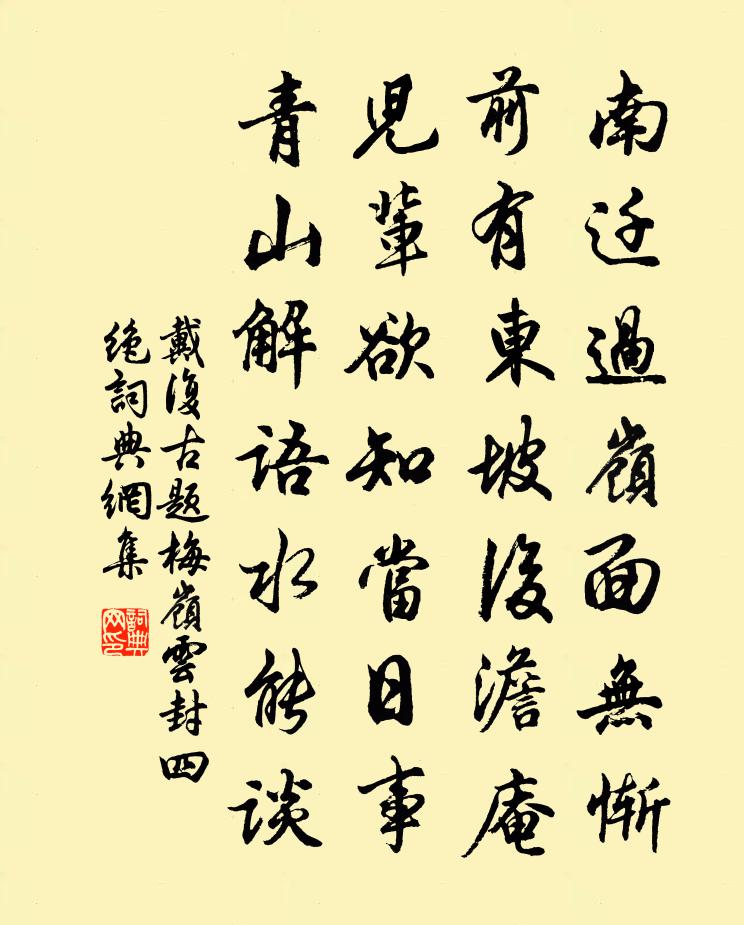 南迁過嶺面無慚
前有東坡後澹庵
兒輩欲知當日事
青山解語水能談
戴復古題梅嶺雲封四
绝詞典網集
詞典
网印